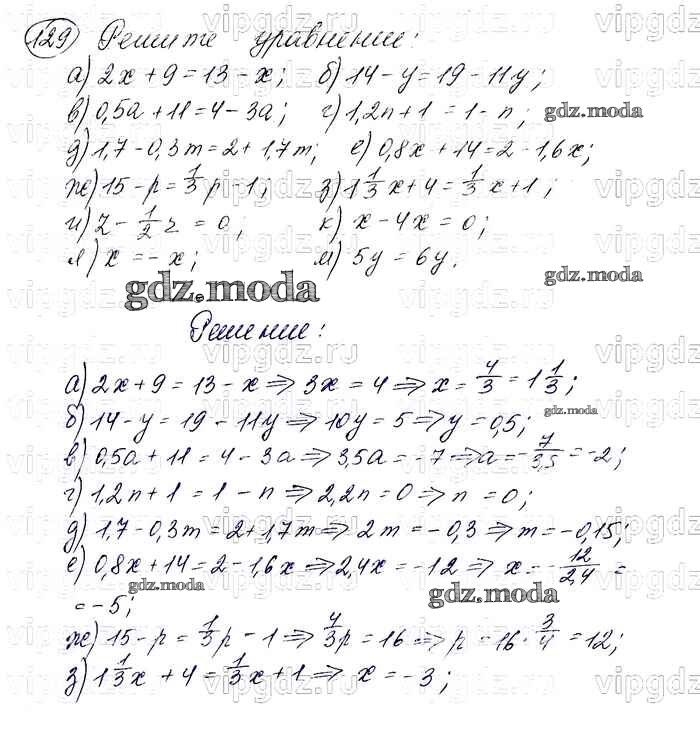 129 Решите уравнение:
а) 2x + 9 = 13 - x; б) 14 - y = 19 - 11y;
в) 0,5a + 11 = 4 - 3a; г) 1,2n + 1 = 1 - n;
gdz.moda
д) 1,7 - 0,3m = 2 + 1,7m; е) 0,8x + 14 = 2 - 1,6x;
ж) 15 - p = 1/3 p - 1; з) 1 1/3 x + 4 = 1/3 x + 1;
и) z - 1/2 z = 0; к) x - 4x = 0;
л) x = - x; м) 5y = 6y.
gdz.moda
gdz.moda
Решение:
а) 2x + 9 = 13 - x ⇒ 3x = 4 ⇒ x = 4/3 = 1 1/3;
б) 14 - y = 19 - 11y ⇒ 10y = 5 ⇒ y = 0,5;
gdz.moda
в) 0,5a + 11 = 4 - 3a ⇒ 3,5a = -7 ⇒ a = -7/3,5 = -2;
г) 1,2n + 1 = 1 - n ⇒ 2,2n = 0 ⇒ n = 0;
д) 1,7 - 0,3m = 2 + 1,7m ⇒ 2m = -0,3 ⇒ m = -0,15;
е) 0,8x + 14 = 2 - 1,6x ⇒ 2,4x = -12 ⇒ x = -12/2,4 =
= -5;
gdz.moda
gdz.moda
ж) 15 - p = 1/3 p - 1 ⇒ 4/3 p = 16 ⇒ p = 16 · 3/4 = 12;
з) 1 1/3 x + 4 = 1/3 x + 1 ⇒ x = -3;
vipgdz.ru